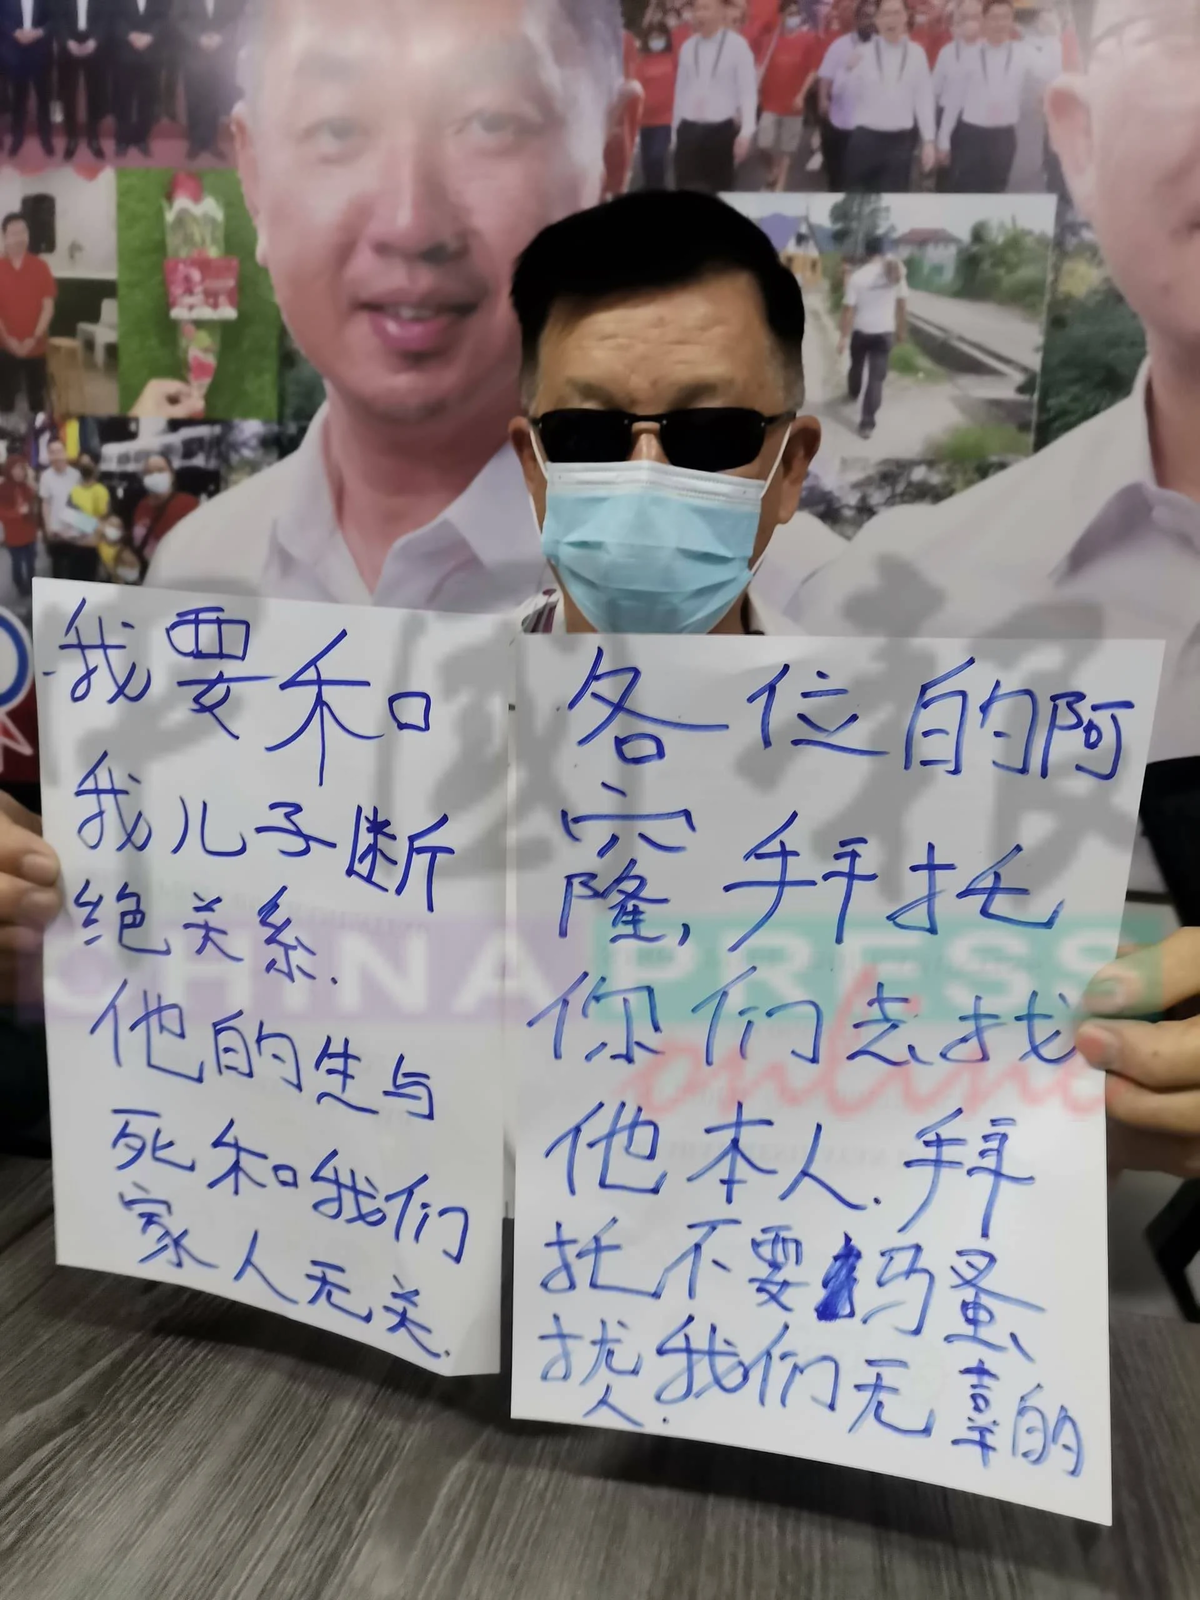 我要和
我儿子断
绝关系.
他的生与
死和我们
家人无关.
各位的阿
窿, 拜托
你们去找
他本人. 拜
托不要骚
扰我们无辜的
人.
中国报
CHINA PRESS
online